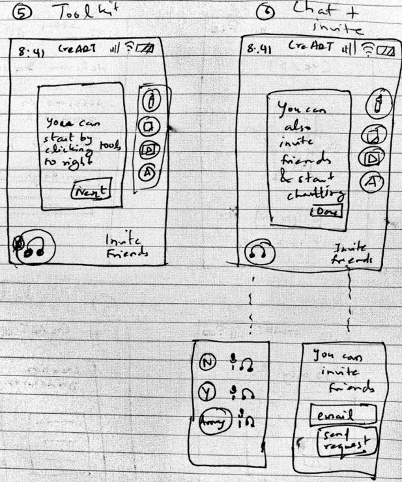 ⑤ Toolkit
8:41 CreART
You can
start by
clicking tools
to right
Next
A
Invite
Friends
⑥ Chat +
invite
8:41 CreART
You can
also
invite
friends
& start
chatting
Done
A
Invite
friends
N
Y
You can
invite
friends
email
send
request